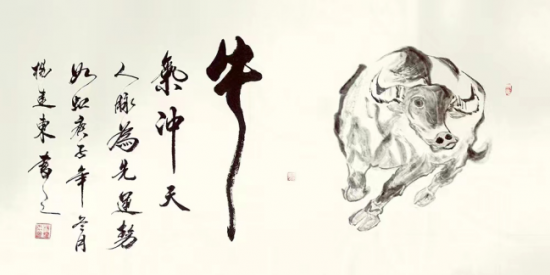 牛
氣沖天
人脈為先運勢
如虹庚子年冬月
建東書之